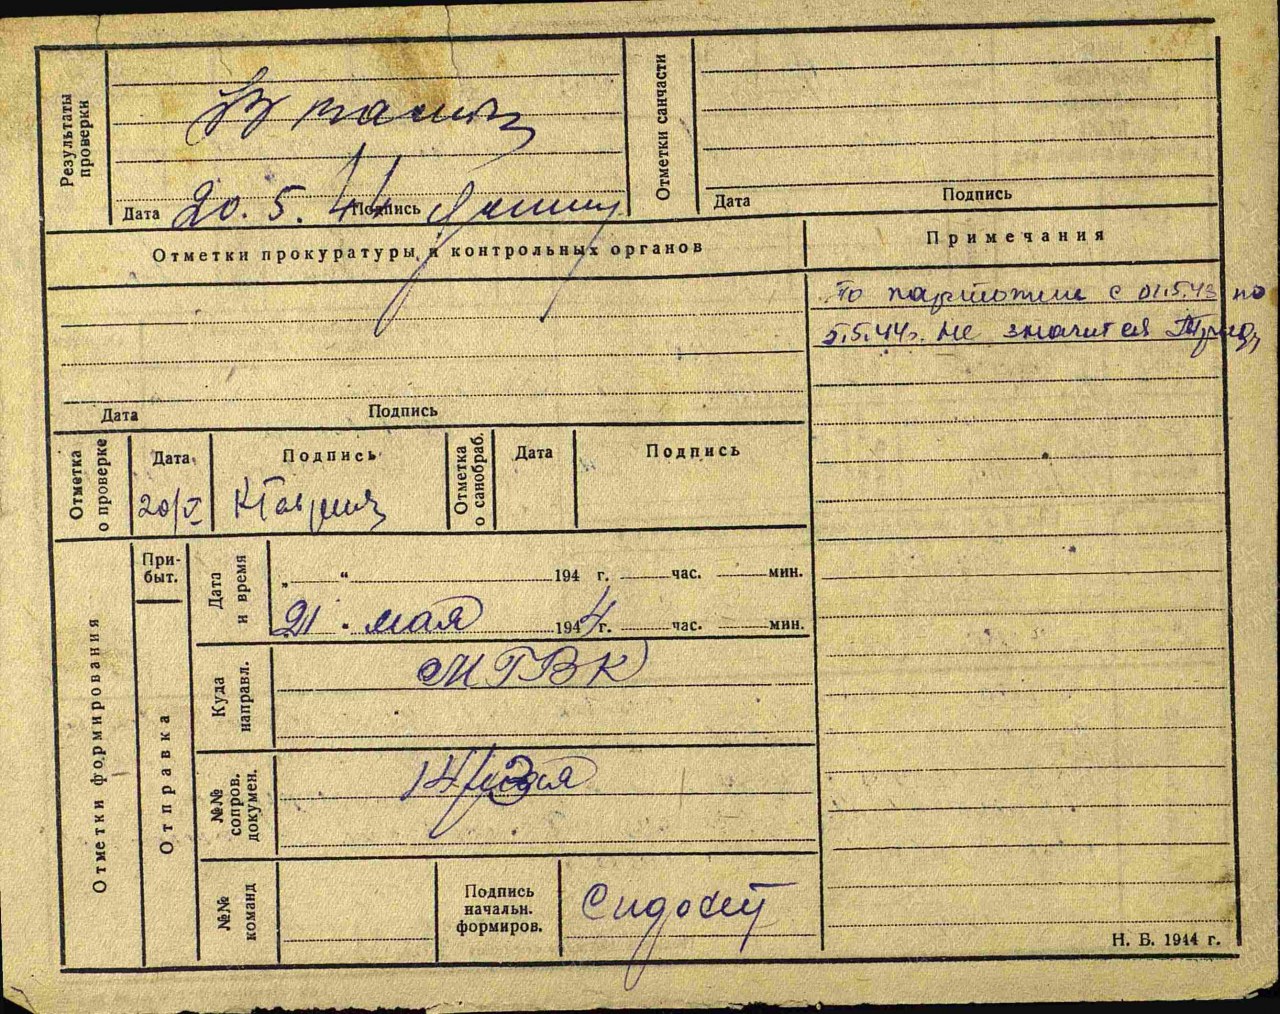 Результаты
проверки
Дата 20. 5. 44 Подпись
Отметки санчасти
Дата Подпись
Отметки прокуратуры и контрольных органов
Дата Подпись
Примечания
По картотеке с 01.5.43 по
5.5.44г. не значится
Отметка
о проверке
Дата
20/V
Подпись
Отметка
о санобраб.
Дата
Подпись
Отметки формирования
При-
быт.
Отправка
Дата
и время
„ “ 194 г. час. мин.
21 " мая 1944 г. час. мин.
Куда
направл.
МГВК
№№
сопров.
докумен.
№№
команд
Подпись
начальн.
формиров.
Н. Б. 1944 г.